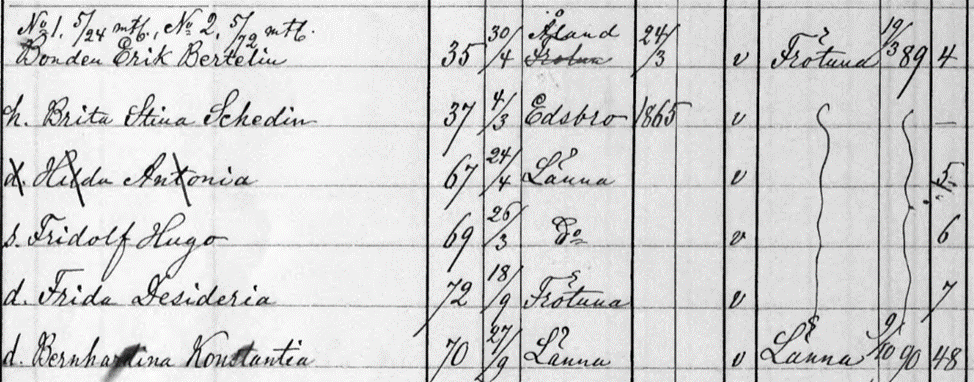 No 1, 5/24 mtl., No 2, 5/72 mtl.
Bonden Erik Bertelin 35 30/4 Åland Frötuna 24/3 v Frötuna 19/3 89 4
h. Brita Stina Schedin 37 4/3 Edsbro 1865 v —
d. Hilda Antonia 67 24/4 Länna v 5
s. Fridolf Hugo 69 26/3 Do v 6
d. Frida Desideria 72 18/9 Frötuna v 7
d. Bernhardina Konstantia 70 27/9 Länna v Länna 9/10 90 48